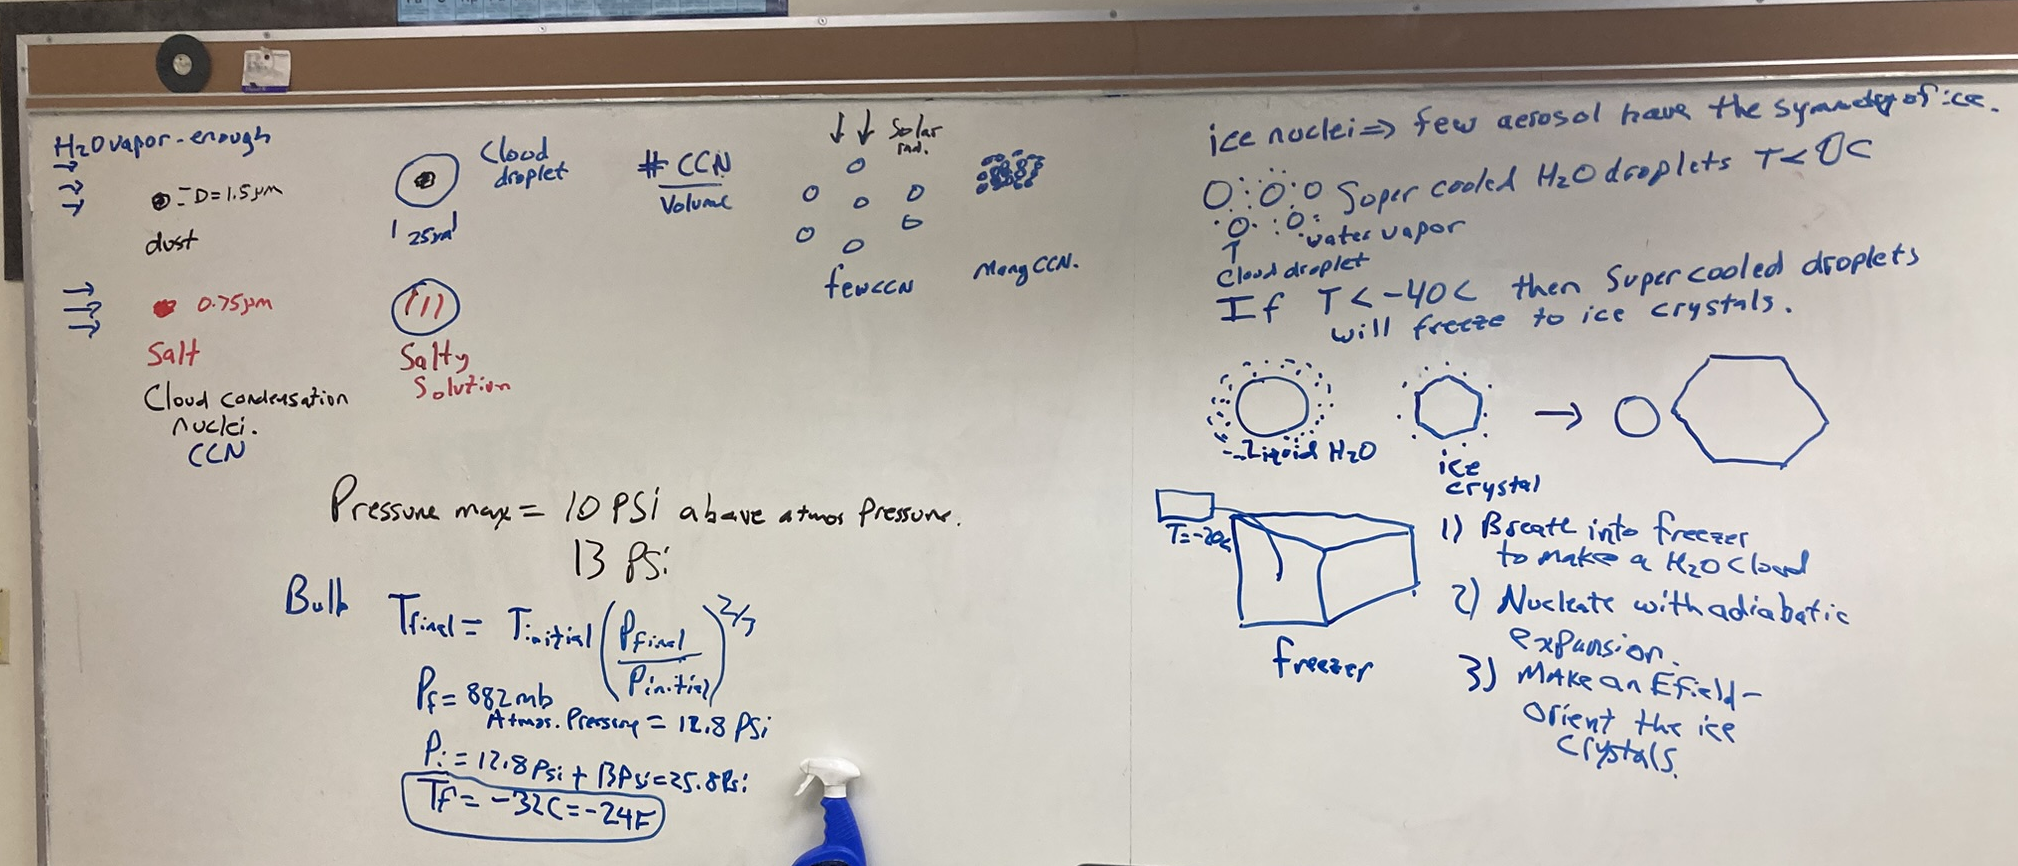 H2O vapor - enough
= D = 1.5 µm
dust
Cloud
droplet
25µm
0.75µm
Salt
Salty
Solution
Cloud condensation
nuclei.
CCN
# CCN
Volume
Solar
rad.
few CCN
Many CCN.
Pressure max = 10 PSi above atmos Pressure.
13 PSi
Bulb
Tfinal = Tinitial (Pfinal / Pinitial)^2/7
Pf = 882 mb
Atmos. Pressure = 12.8 PSi
Pi = 12.8 PSi + 13 PSi = 25.8 PSi
Tf = -32C = -24F
ice nuclei => few aerosol have the symmetry of ice.
Super cooled H2O droplets T < 0C
water vapor
Cloud droplet
If T < -40C then Super cooled droplets
will freeze to ice crystals.
Liquid H2O
ice
crystal
T = -20C
freezer
1) Breath into freezer
to make a H2O Cloud
2) Nucleate with adiabatic
expansion.
3) Make an Efield -
Orient the ice
Crystals.